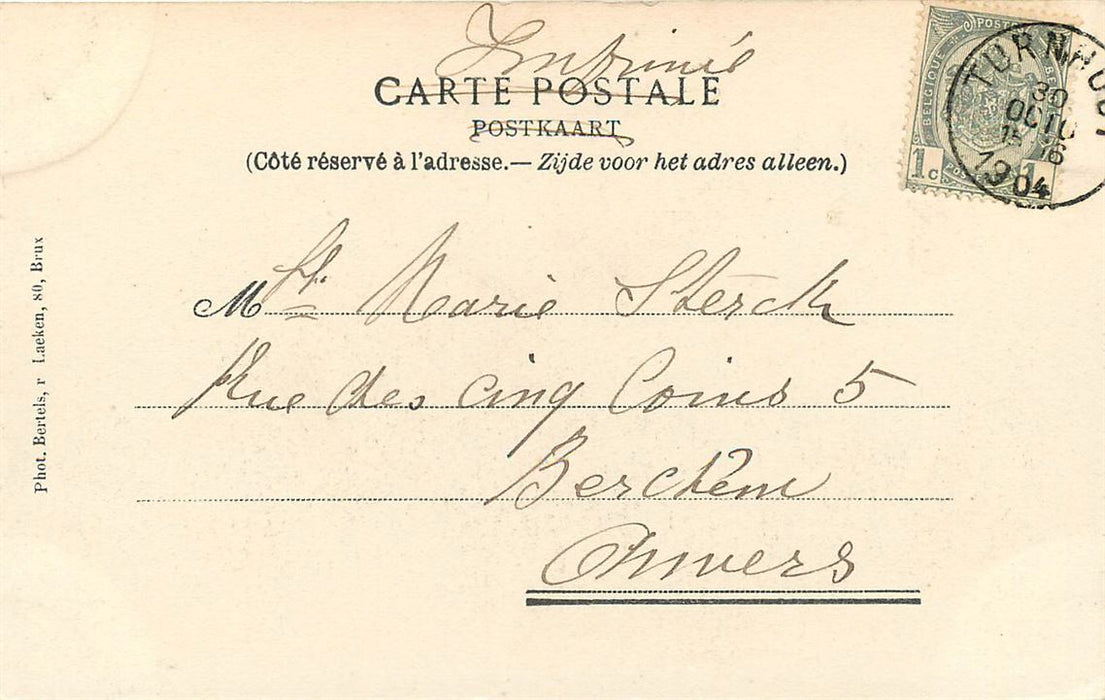 Imprimé
CARTE POSTALE
POSTKAART
(Côté réservé à l'adresse.— Zijde voor het adres alleen.)
BELGIQUE POSTES
1c 1
TURNHOUT
30
OCTO
15 16
1904
M Marie Sterck
Rue des cinq Coins 5
Berchem
Anvers
Phot. Bertels, r Laeken, 80, Brux